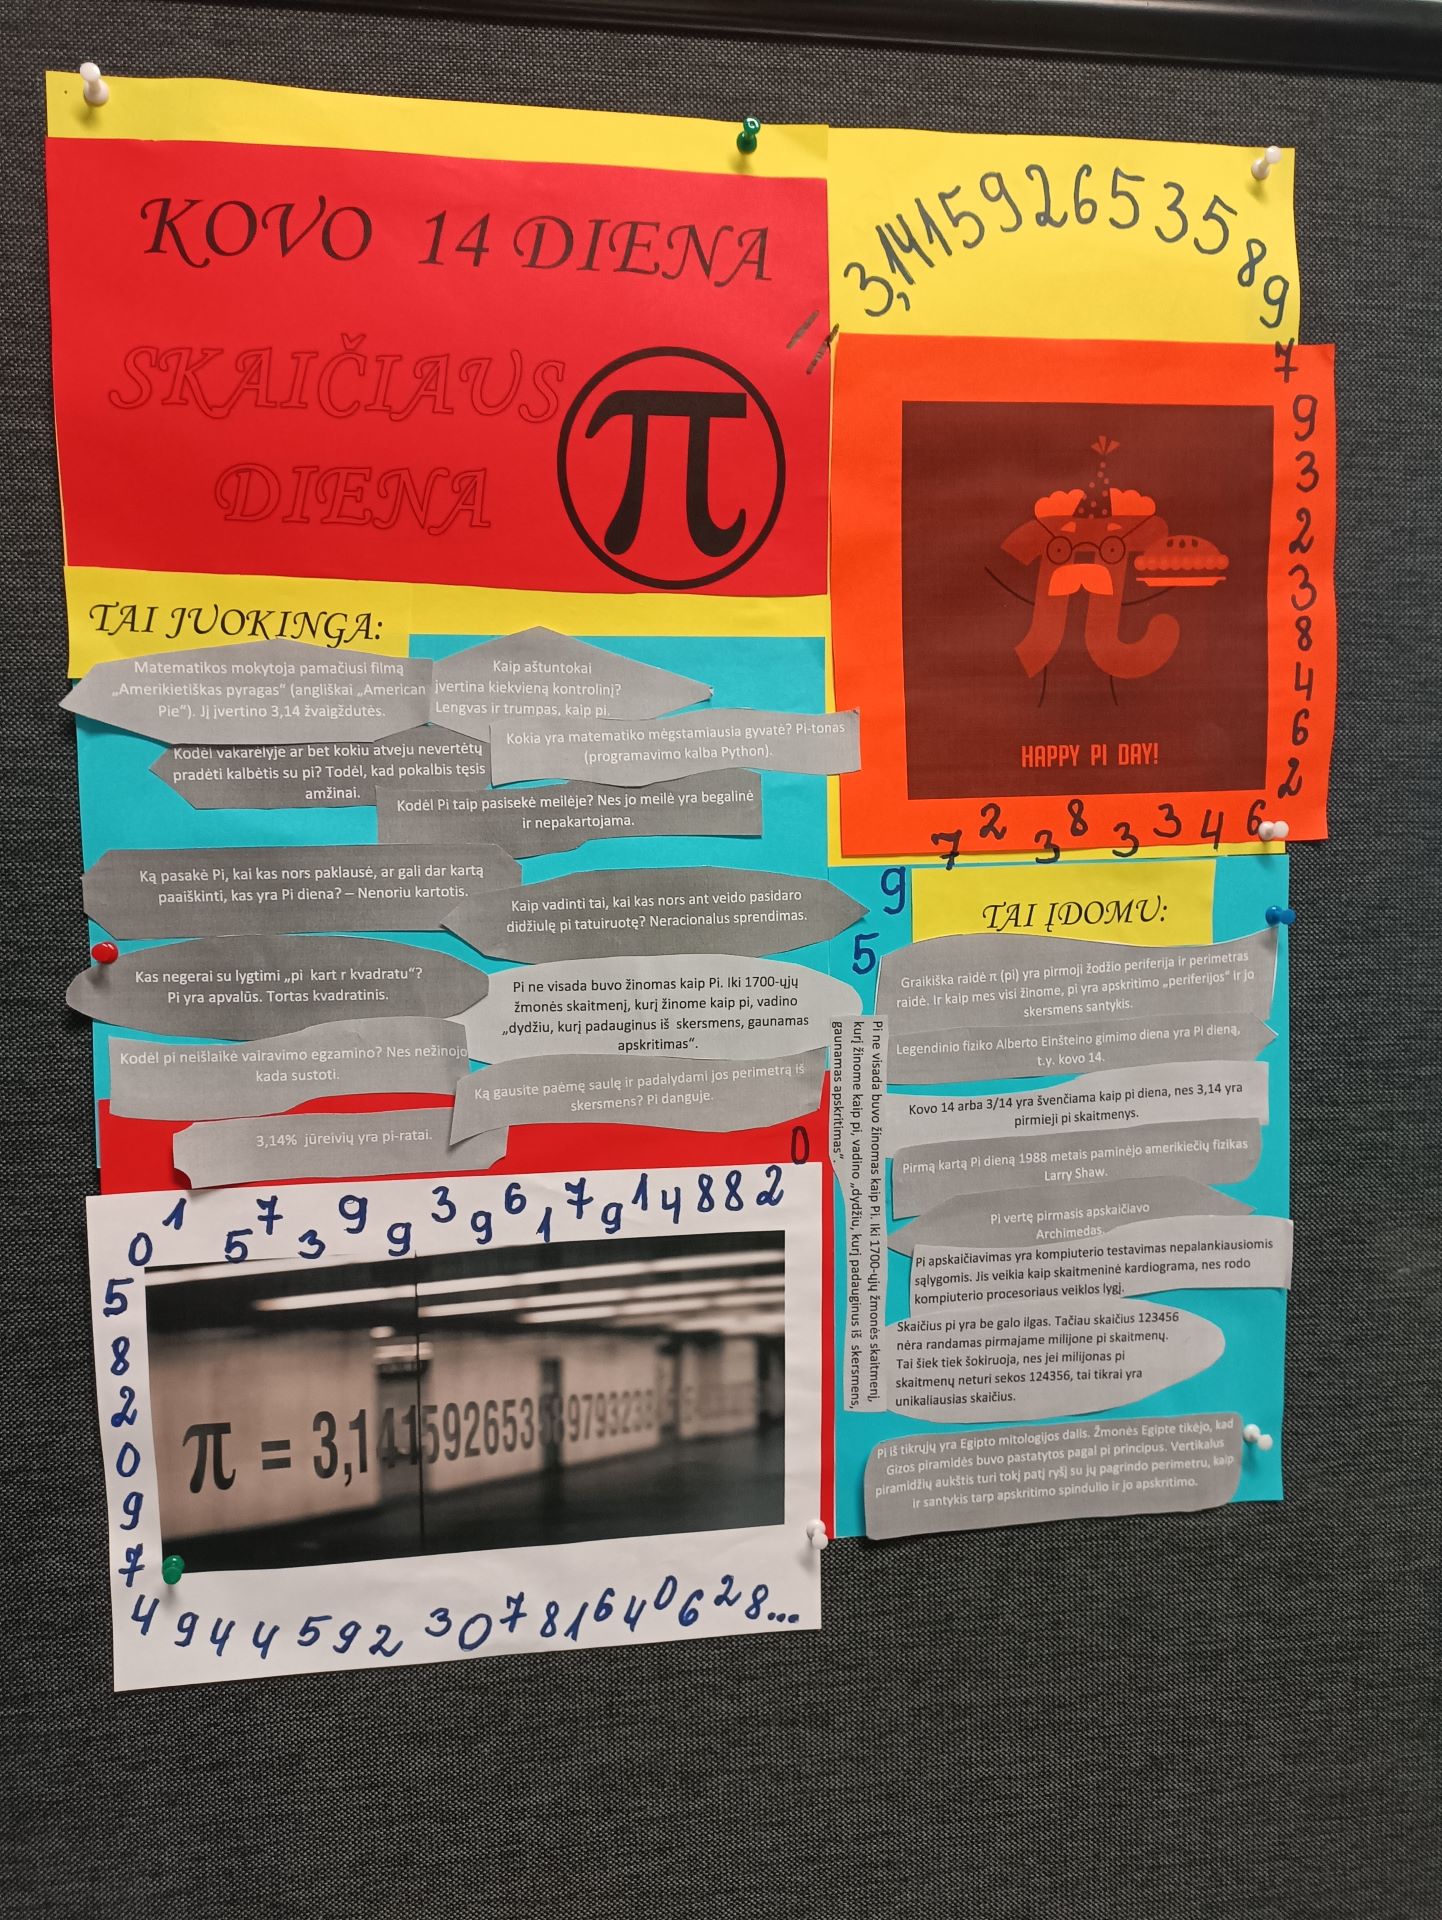 KOVO 14 DIENA
SKAIČIAUS
π
DIENA
3,141592653589
7
9
3
2
3
8
4
6
2
6
4
3
3
8
3
2
7
9
5
0
2
8
8
4
1
9
7
1
6
9
3
9
9
3
7
5
1
0
5
8
2
0
9
7
4 9 4 4 5 9 2 3 0 7 8 1 6 4 0 6 2 8...
HAPPY PI DAY!
TAI JUOKINGA:
Matematikos mokytoja pamačiusi filmą
„Amerikietiškas pyragas“ (angliškai „American
Pie“). Jį įvertino 3,14 žvaigždutės.
Kaip aštuntokai
įvertina kiekvieną kontrolinį?
Lengvas ir trumpas, kaip pi.
Kokia yra matematiko mėgstamiausia gyvatė? Pi-tonas
(programavimo kalba Python).
Kodėl vakarėlyje ar bet kokiu atveju nevertėtų
pradėti kalbėtis su pi? Todėl, kad pokalbis tęsis
amžinai.
Kodėl Pi taip pasisekė meilėje? Nes jo meilė yra begalinė
ir nepakartojama.
Ką pasakė Pi, kai kas nors paklausė, ar gali dar kartą
paaiškinti, kas yra Pi diena? – Nenoriu kartotis.
Kaip vadinti tai, kai kas nors ant veido pasidaro
didžiulę pi tatuiruotę? Neracionalus sprendimas.
Kas negerai su lygtimi „pi kart r kvadratu“?
Pi yra apvalūs. Tortas kvadratinis.
Pi ne visada buvo žinomas kaip Pi. Iki 1700-ųjų
žmonės skaitmenį, kurį žinome kaip pi, vadino
„dydžiu, kurį padauginus iš skersmens, gaunamas
apskritimas“.
Kodėl pi neišlaikė vairavimo egzamino? Nes nežinojo
kada sustoti.
Ką gausite paėmę saulę ir padalydami jos perimetrą iš
skersmens? Pi danguje.
3,14% jūreivių yra pi-ratai.
π = 3,14159265358979323
TAI ĮDOMU:
Graikiška raidė π (pi) yra pirmoji žodžio periferija ir perimetras
raidė. Ir kaip mes visi žinome, pi yra apskritimo „periferijos“ ir jo
skersmens santykis.
Legendinio fiziko Alberto Einšteino gimimo diena yra Pi dieną,
t.y. kovo 14.
Kovo 14 arba 3/14 yra švenčiama kaip pi diena, nes 3,14 yra
pirmieji pi skaitmenys.
Pirmą kartą Pi dieną 1988 metais paminėjo amerikiečių fizikas
Larry Shaw.
Pi vertę pirmasis apskaičiavo
Archimedas.
Pi apskaičiavimas yra kompiuterio testavimas nepalankiausiomis
sąlygomis. Jis veikia kaip skaitmeninė kardiograma, nes rodo
kompiuterio procesoriaus veiklos lygį.
Skaičius pi yra be galo ilgas. Tačiau skaičius 123456
nėra randamas pirmajame milijone pi skaitmenų.
Tai šiek tiek šokiruoja, nes jei milijonas pi
skaitmenų neturi sekos 124356, tai tikrai yra
unikaliausias skaičius.
Pi iš tikrųjų yra Egipto mitologijos dalis. Žmonės Egipte tikėjo, kad
Gizos piramidės buvo pastatytos pagal pi principus. Vertikalus
piramidžių aukštis turi tokį patį ryšį su jų pagrindo perimetru, kaip
ir santykis tarp apskritimo spindulio ir jo apskritimo.
Pi ne visada buvo žinomas kaip Pi. Iki 1700-ųjų žmonės skaitmenį,
kurį žinome kaip pi, vadino „dydžiu, kurį padauginus iš skersmens,
gaunamas apskritimas“.